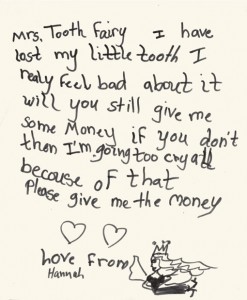 Mrs. Tooth Fairy I have
lost my little tooth I
realy feel bad about it
will you still give me
some Money if you don't
then I'm going too cry all
because of that
Please give me the money
Love From
Hannah